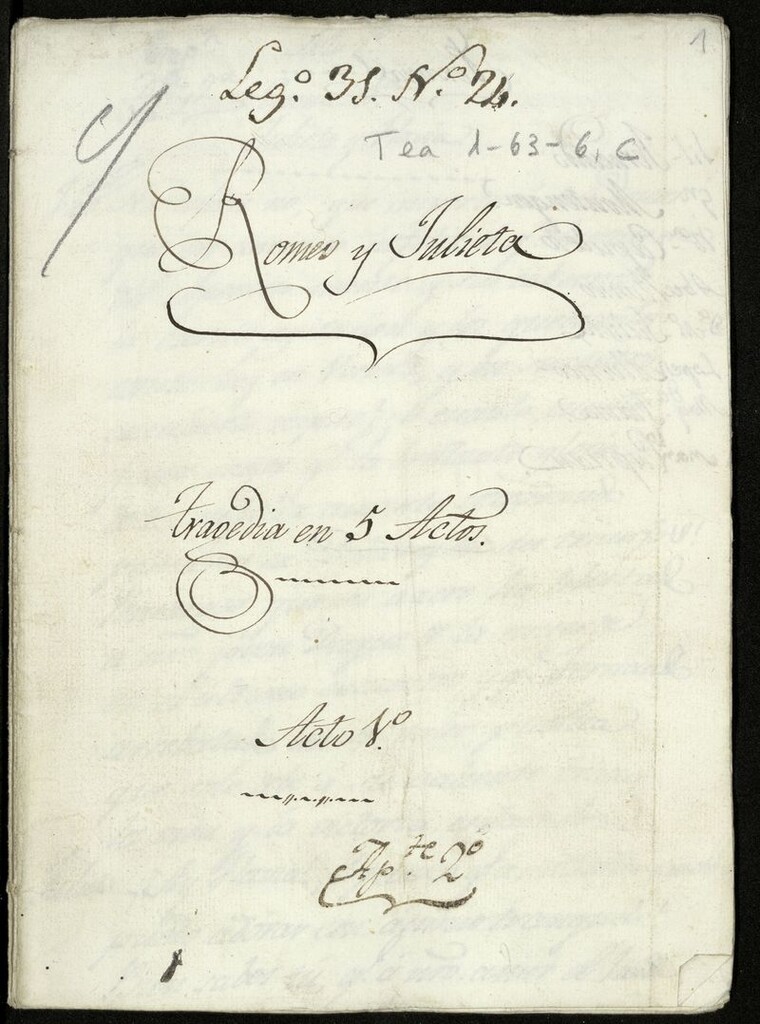 1
Leg.º 31. N.º 24.
Tea 1-63-6, C
Romeo y Julieta
tragedia en 5 Actos.
Acto 1.º
Ap.te 2º